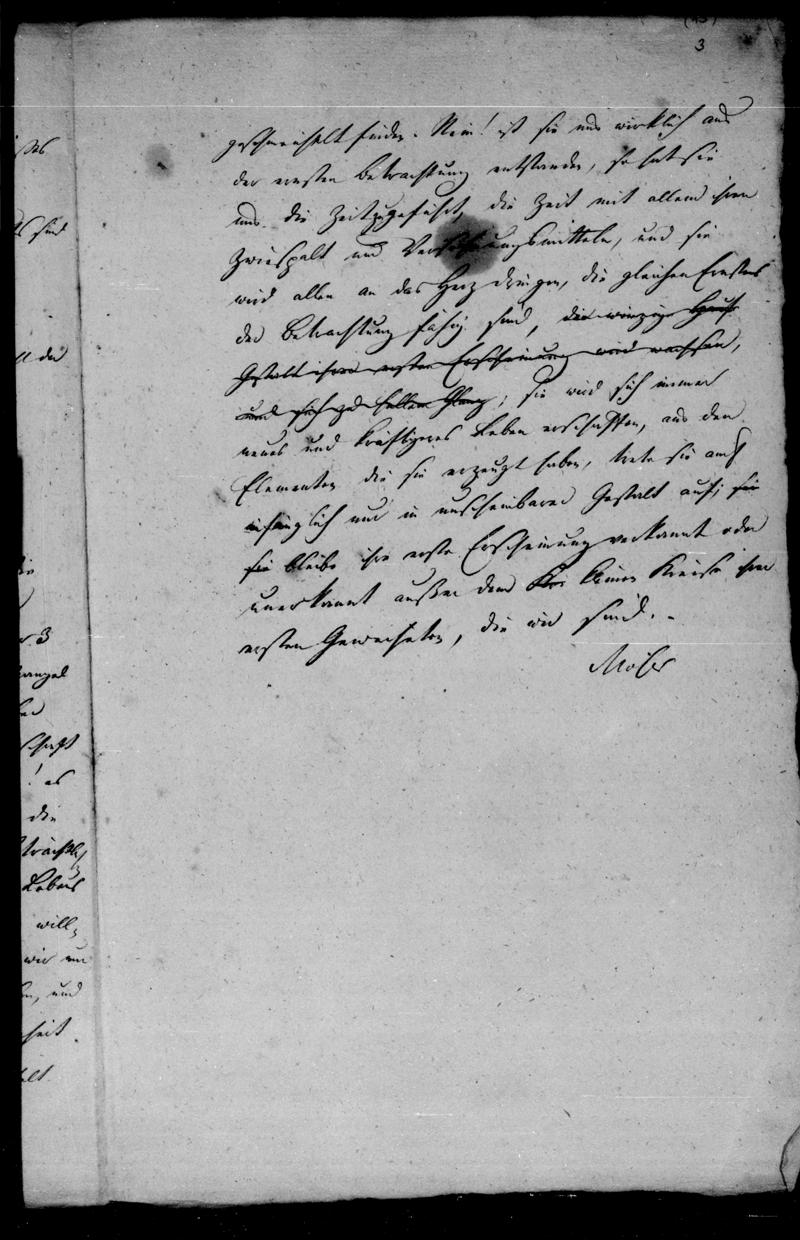 3
geschmeichelt finden. Nein! ist sie uns wirklich aus
der ernsten Betrachtung entstanden, so hat sie
uns die Zeit zugeführt, die Zeit mit allem ihren
Zwiespalt und Versöhnungsmitteln, und sie
wird allen an das Herz dringen, die gleichen Ernstes
der Betrachtung fähig sind, die winzige
Gestalt ihrer ersten Erscheinung wird wachsen,
und sich zu hellem Glanz; sie wird sich immer
neues und kräftigeres Leben erschaffen, aus den
Elementen die sie erzeugt haben, trete sie auch
anfänglich nur in unscheinbarer Gestalt auf; sie
sie bleibe ihre erste Erscheinung verkannt oder
unerkannt außer dem kleinen Kreise ihrer
ersten Geweiheten, die wir sind.
Moser
sind
ll der
die
r. 3
mangel
schaft
! es
die
Lebens
will,
wir nur
und
heit.